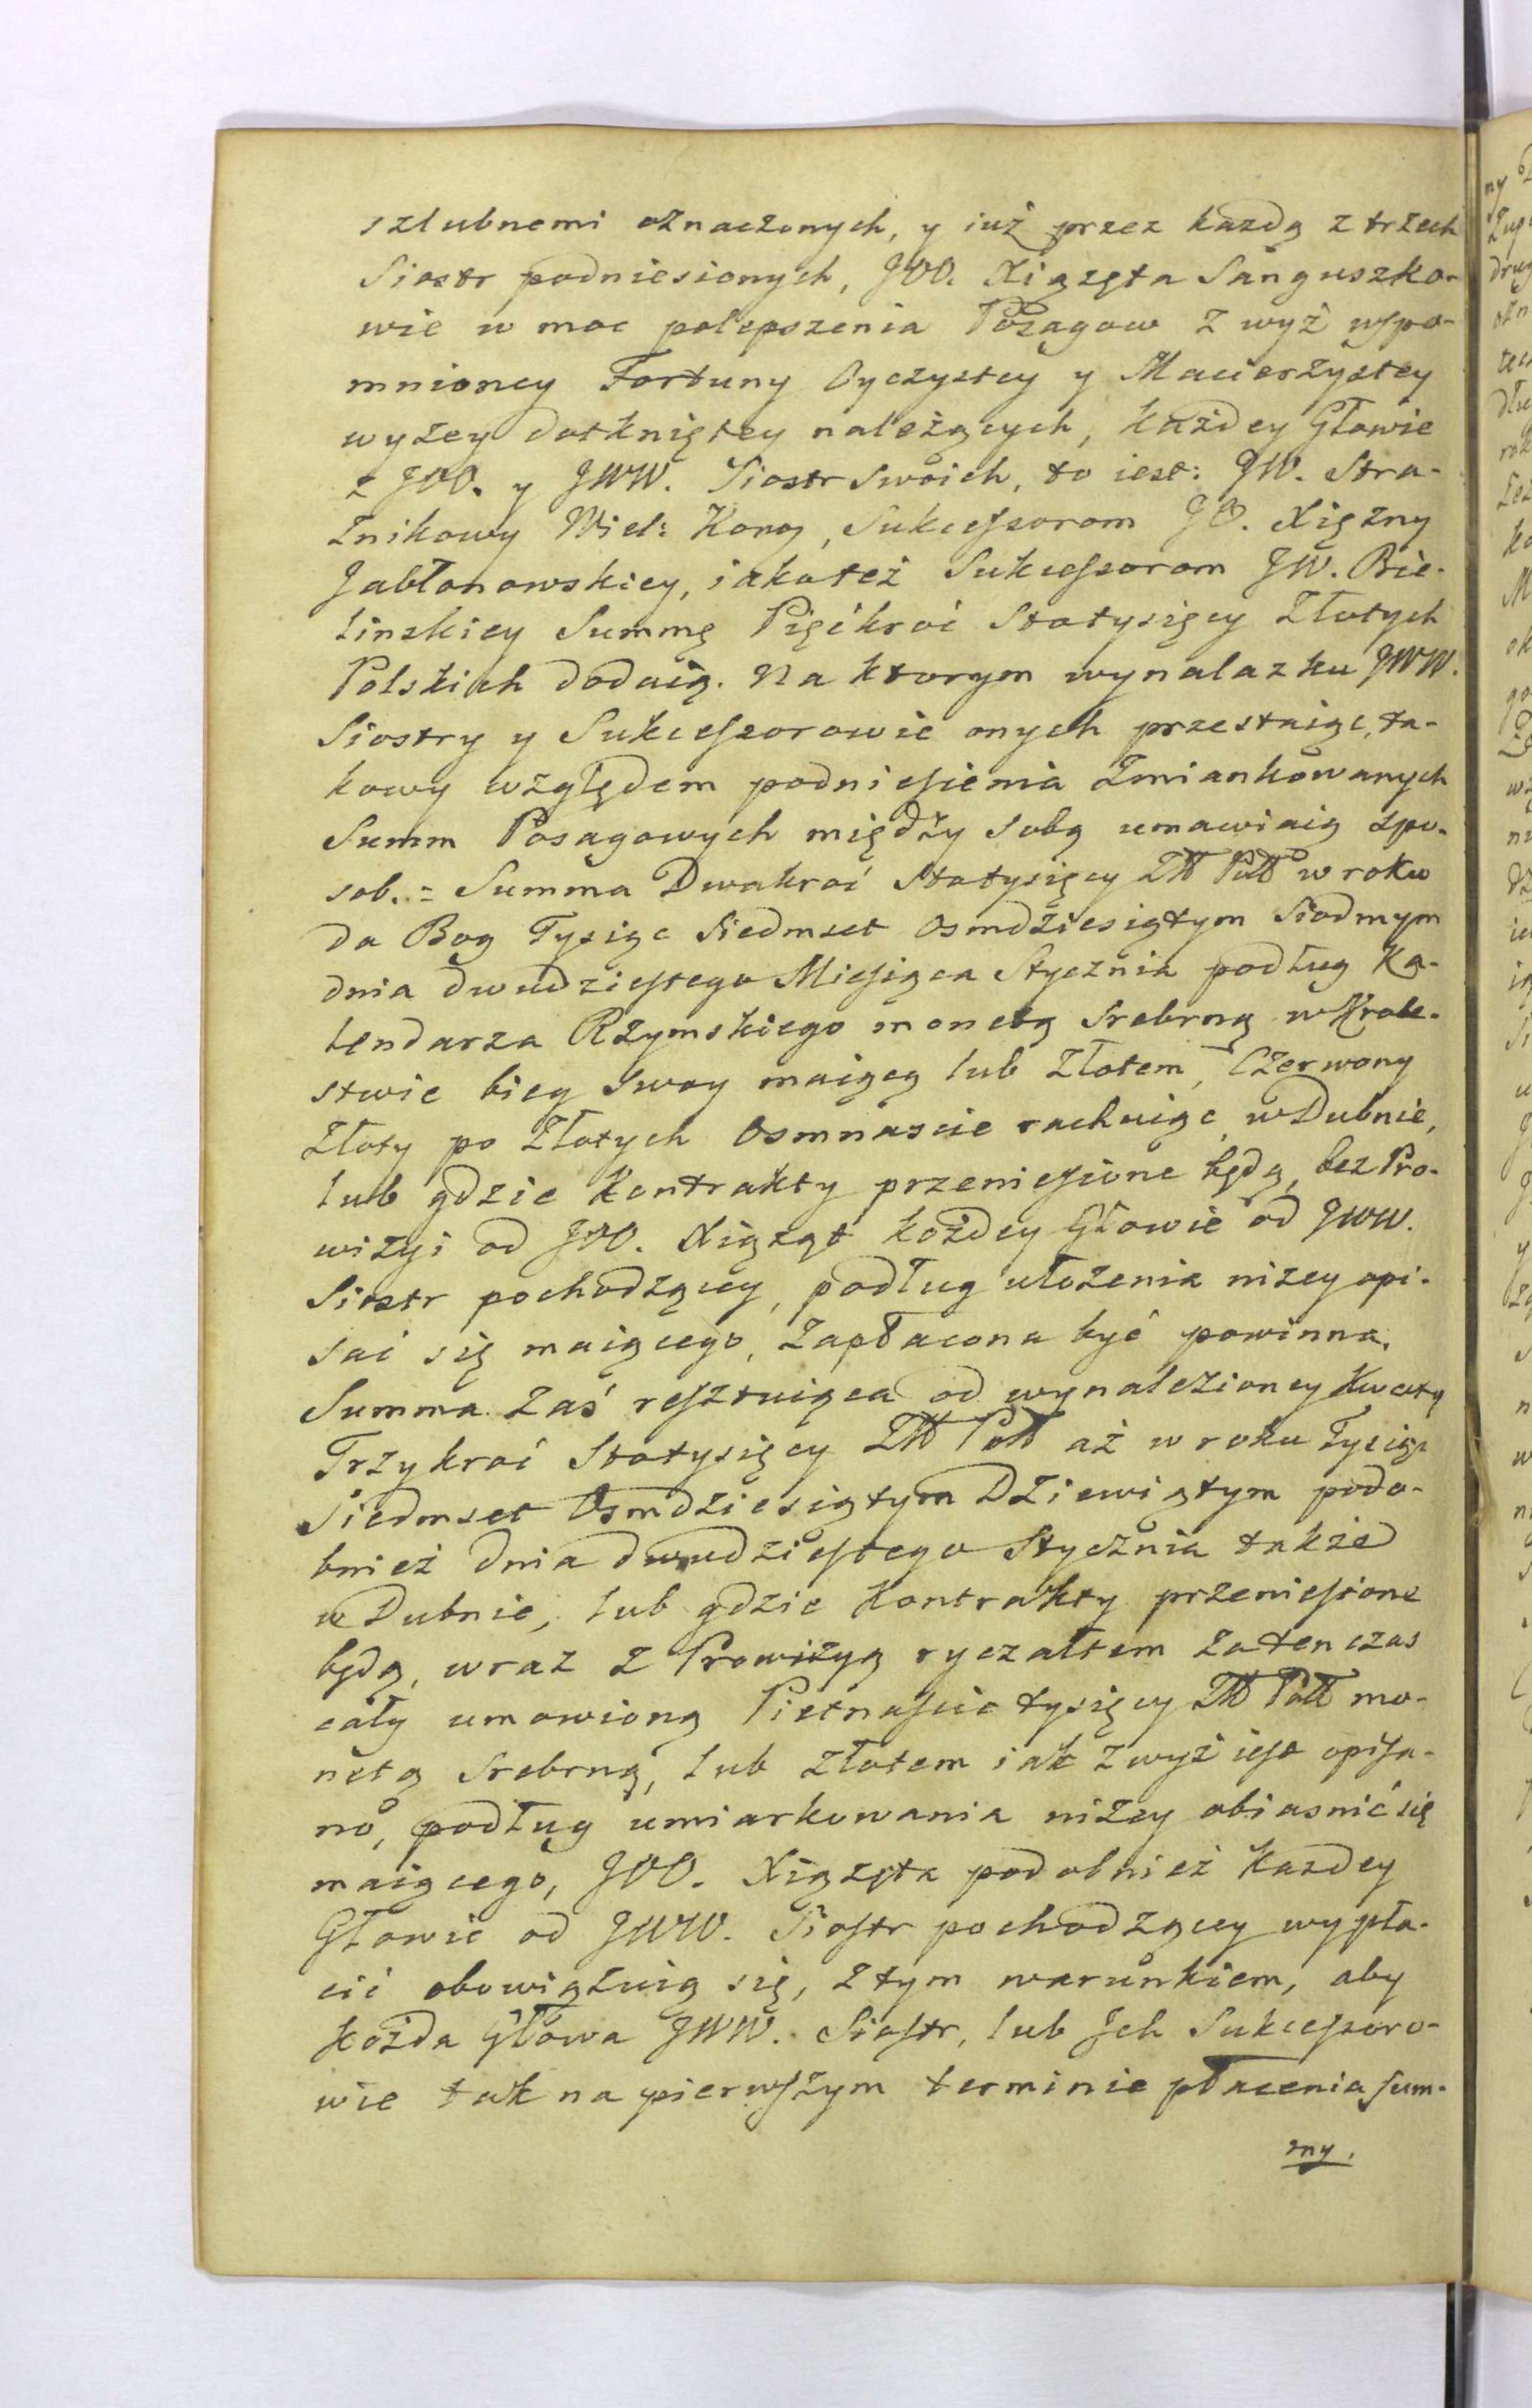 szlubnemi oznaczonych, y iuż przez każdą z trzech
Siostr podniesionych, JOO. Xiążęta Sanguszko-
wie w moc polepszenia Posagow z wyż wspo-
mnioney Fortuny Oyczystey y Macierzystey
wyżey dotkniętey należących, każdey Głowie
z JOO. y JWW. Siostr Swoich, to iest: JW. Stra-
żnikowy Wiel: Koroj, Sukcessorom JO. Xiężny
Jabłonowskiey, iakoteż Sukcessorom JW. Bie-
linskiey Summę Pięćkroć Stotysięcy Złotych
Polskich dodaią. Na ktorym wynalazku JWW.
Siostry y Sukcessorowie onych przestaiąc, ta-
kowy względem podniesienia zmiankowanych
Summ Posagowych między sobą umawiaią spo-
sob. = Summa Dwakroć Stotysięcy Złł Poll w roku
da Bog Tysiąc Siedmset Osmdziesiątym Siodmym
dnia dwudziestego Miesiąca Stycznia podług Ka-
lendarza Rzymskiego monetą Srebrną w Krole-
stwie bieg swoy maiącą lub Złotem, Czerwony
Złoty po Złotych Osmnascie rachuiąc, w Dubnie,
lub gdzie Kontrakty przeniesione będą, bez Pro-
wizyi od JOO. Xiążąt każdey Głowie od JWW.
Siostr pochodzącey, podług ułożenia niżey opi-
sać się maiącego, zapłacona być powinna.
Summa zaś resztuiąca od wynalezioney Kwoty
Trzykroć Stotysięcy Złł Poll aż w roku Tysiąc
Siedmset Osmdziesiątym Dziewiątym podo-
bnież dnia dwudziestego Stycznia także
w Dubnie, lub gdzie Kontrakty przeniesione
będą, wraz z Prowizyą ryczałtem za ten czas
cały umowioną Pietnaście tysięcy Złł Poll mo-
netą Srebrną, lub złotem iak zwyż iest opisa-
no, podług umiarkowania niżey obiasnić się
maiącego, JOO. Xiążęta podobnież każdey
Głowie od JWW. Siostr pochodzącey wypła-
cić obowiązuią się, z tym warunkiem, aby
każda Głowa JWW. Siostr, lub Jch Sukcessoro-
wie tak na pierwszym terminie płacenia sum-
my.